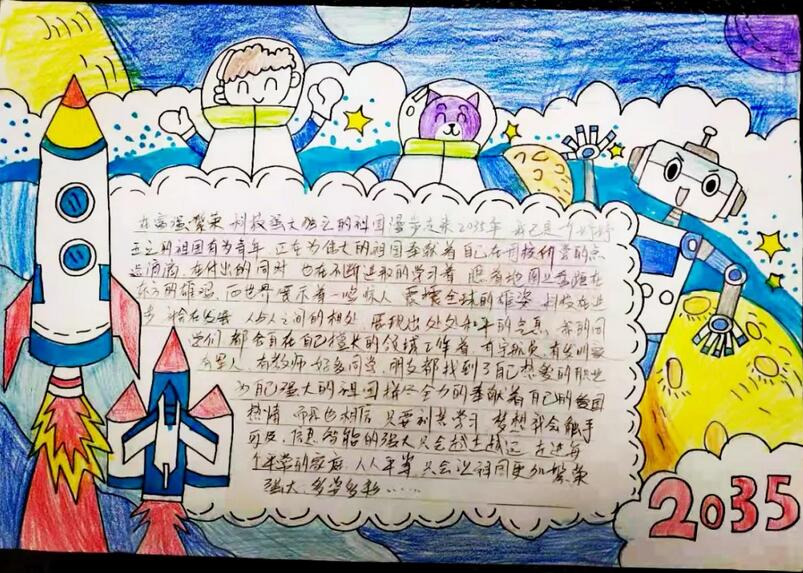 在富强繁荣 科技强大独立的祖国漫步走来2035年 我已是一
的祖国有为青年 正在为伟大的祖国奉献着自己在所投价营的点
点滴滴，在付出的同时 也在不断进取的学习着
东方的雄狮，向世界展示着一些惊人 震撼全球的雄姿 科技在进
步 人与人之间的相处，展现出处处和平的 我的同
学们 都会有在自己擅长的领域工作着 有宇航员，有
有教师 好多同学，朋友都找到了自己想要的职业
为自己强大的祖国拼尽全力的奉献着自己的爱国
热情 而我也相信 只要刻苦学习 梦想我会触手
可及，信息智能的强大只会越走越远 走进每
个平常的家庭，人人平等 只会让祖国更加繁荣
强大，多学多彩……
2035